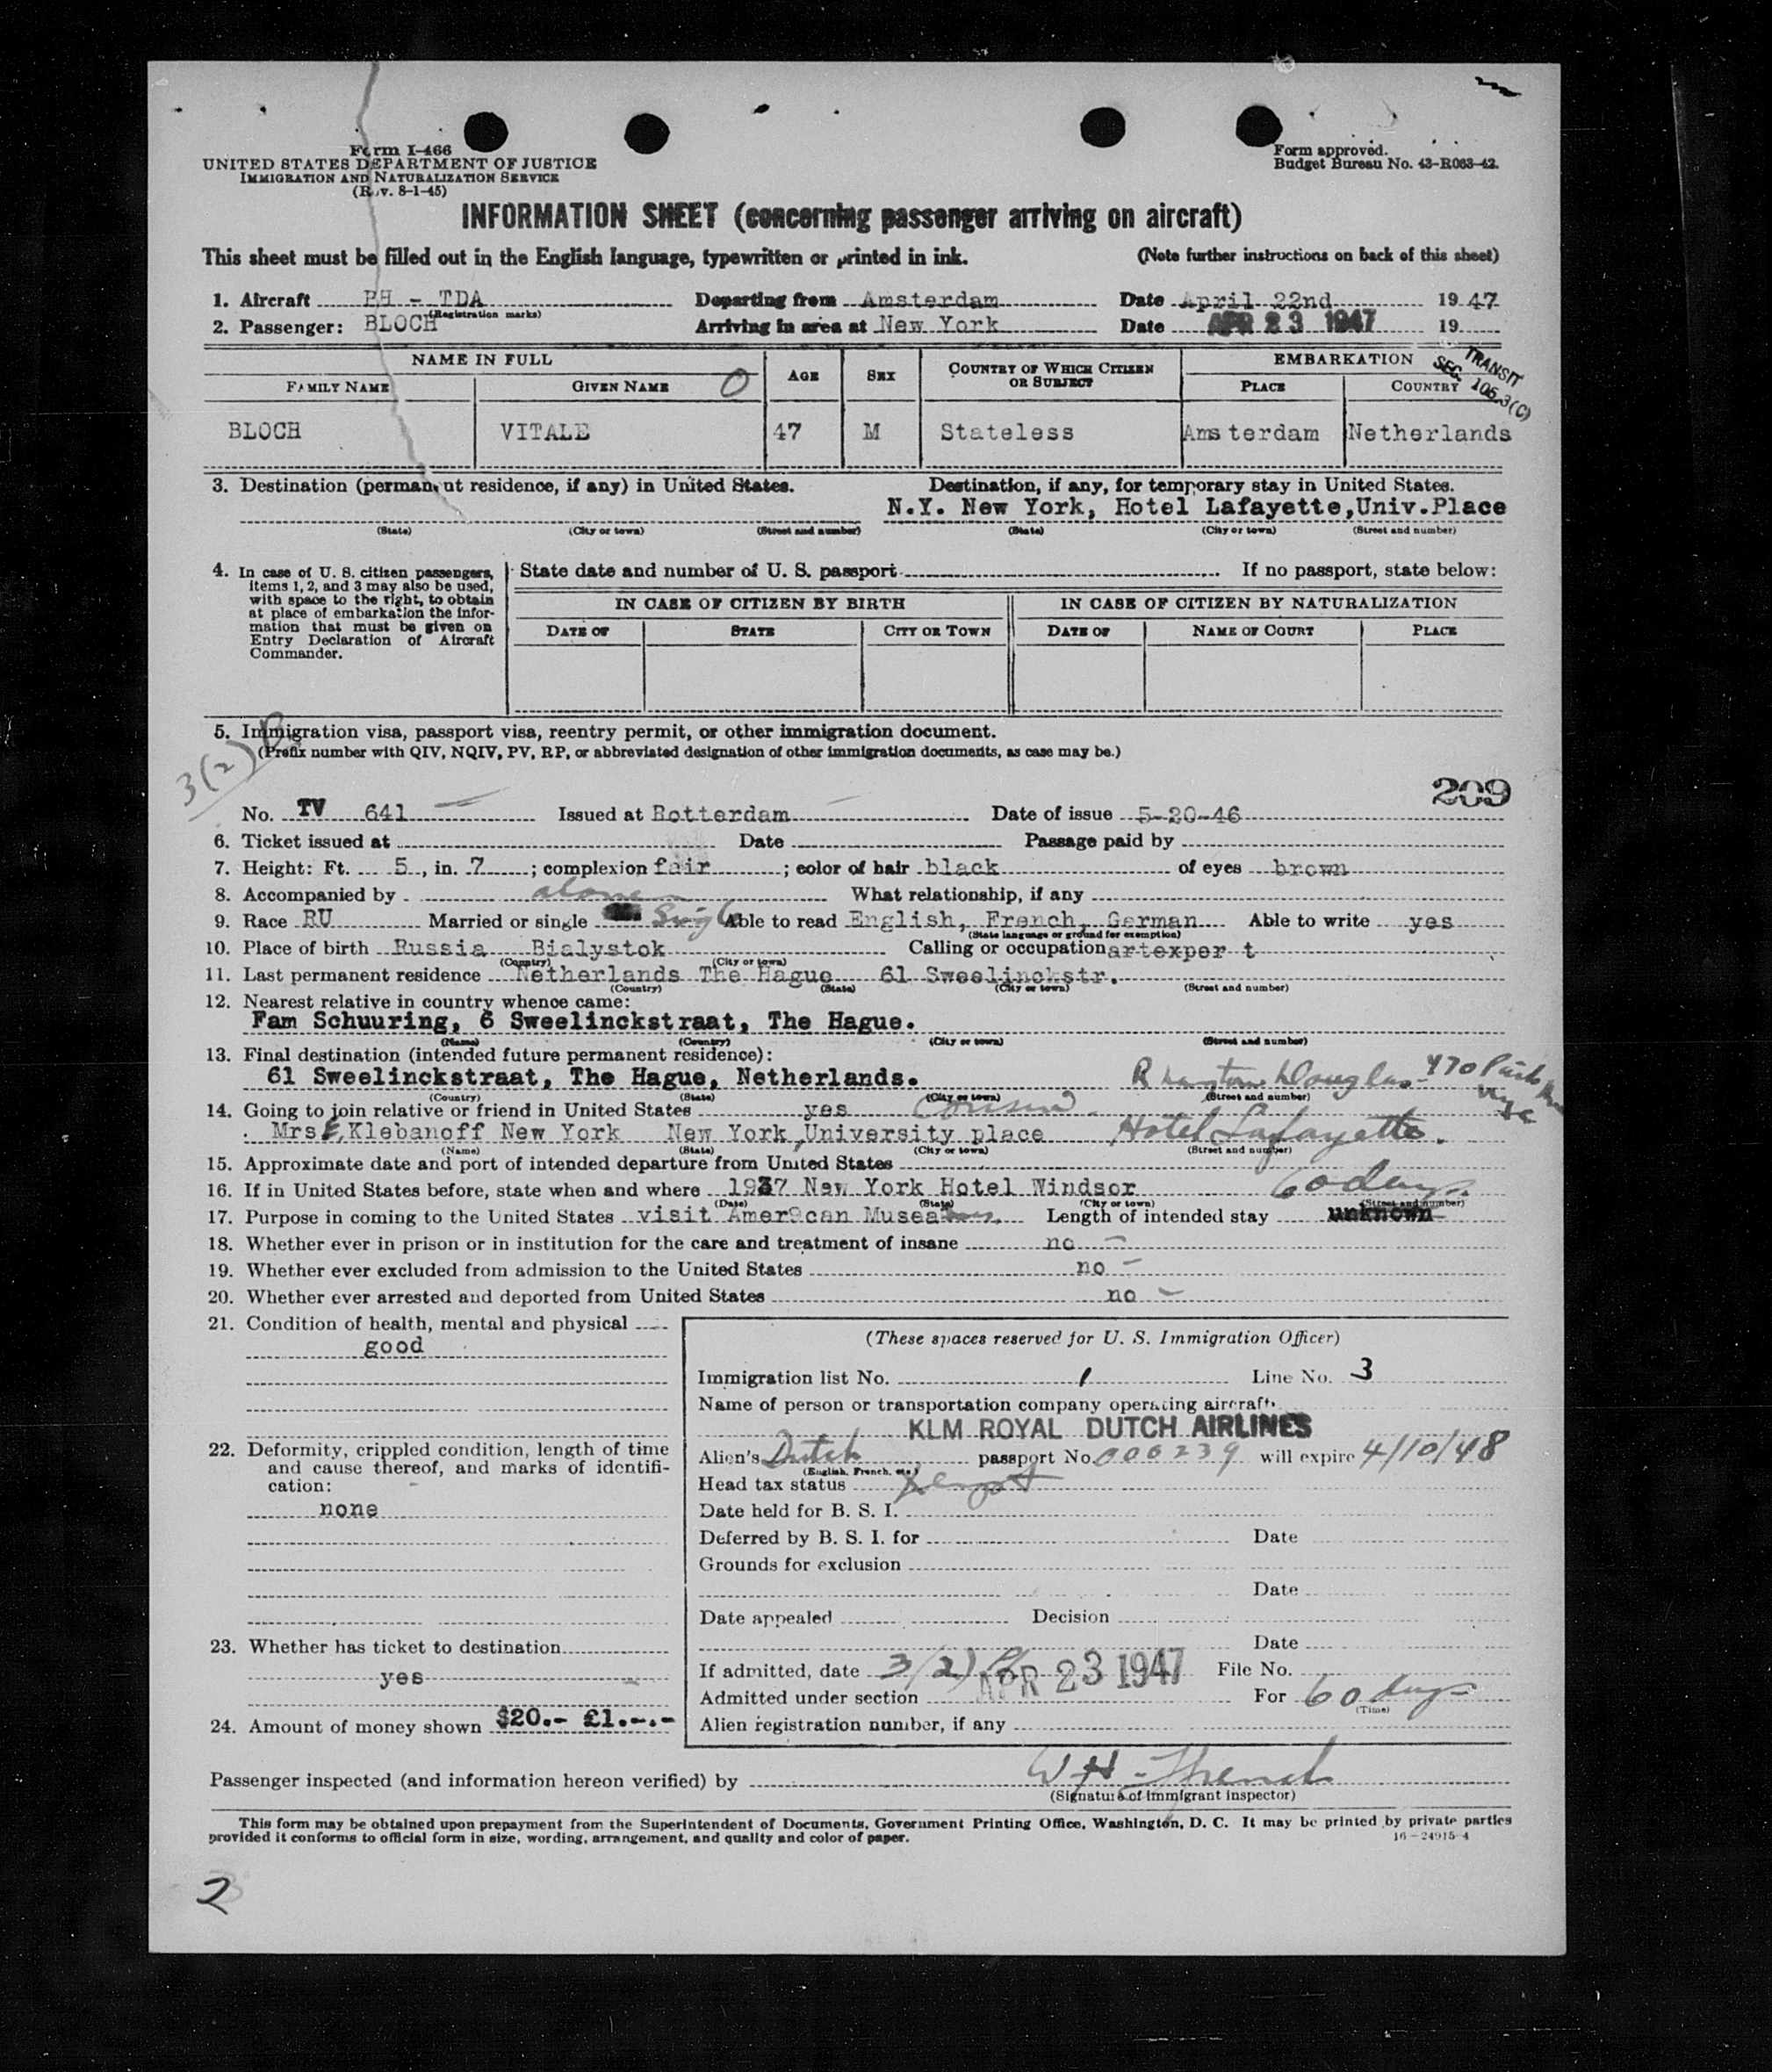 Form I-466
UNITED STATES DEPARTMENT OF JUSTICE
IMMIGRATION AND NATURALIZATION SERVICE
(Rev. 8-1-45)
Form approved.
Budget Bureau No. 43-R063-42.
INFORMATION SHEET (concerning passenger arriving on aircraft)
This sheet must be filled out in the English language, typewritten or printed in ink. (Note further instructions on back of this sheet)
1. Aircraft PH - TDA Departing from Amsterdam Date April 22nd 1947
(Registration marks)
2. Passenger: BLOCH Arriving in area at New York Date APR 23 1947 19
NAME IN FULL AGE SEX COUNTRY OF WHICH CITIZEN OR SUBJECT EMBARKATION
TRANSIT SEC. 106.3(C)
FAMILY NAME GIVEN NAME PLACE COUNTRY
BLOCH VITALE 47 M Stateless Amsterdam Netherlands
3. Destination (permanent residence, if any) in United States. Destination, if any, for temporary stay in United States.
N.Y. New York, Hotel Lafayette,Univ.Place
(State) (City or town) (Street and number) (State) (City or town) (Street and number)
4. In case of U. S. citizen passengers, items 1, 2, and 3 may also be used, with space to the right, to obtain at place of embarkation the information that must be given on Entry Declaration of Aircraft Commander.
State date and number of U. S. passport If no passport, state below:
IN CASE OF CITIZEN BY BIRTH IN CASE OF CITIZEN BY NATURALIZATION
DATE OF STATE CITY OR TOWN DATE OF NAME OF COURT PLACE
5. Immigration visa, passport visa, reentry permit, or other immigration document.
(Prefix number with QIV, NQIV, PV, RP, or abbreviated designation of other immigration documents, as case may be.)
3(2)
209
No. TV 641 Issued at Rotterdam Date of issue 5-20-46
6. Ticket issued at Date Passage paid by
7. Height: Ft. 5, in. 7; complexion fair; color of hair black of eyes brown
8. Accompanied by alone What relationship, if any
9. Race RU Married or single Single Able to read English, French, German Able to write yes
(State language or ground for exemption)
10. Place of birth Russia Bialystok Calling or occupation artexper t
(Country) (City or town)
11. Last permanent residence Netherlands The Hague 61 Sweelinckstr.
(Country) (State) (City or town) (Street and number)
12. Nearest relative in country whence came:
Fam Schuuring, 6 Sweelinckstraat, The Hague.
(Name) (Country) (City or town) (Street and number)
13. Final destination (intended future permanent residence):
61 Sweelinckstraat, The Hague, Netherlands. R Langton Douglas 470 Park
(Country) (State) (City or town) (Street and number)
14. Going to join relative or friend in United States yes cousin.
Mrs E, Klebanoff New York New York, University place Hotel Lafayette.
(Name) (State) (City or town) (Street and number)
15. Approximate date and port of intended departure from United States
16. If in United States before, state when and where 1937 New York Hotel Windsor 60 days.
(Date) (State) (City or town) (Street and number)
17. Purpose in coming to the United States visit Amer9can Musea Length of intended stay unknown
18. Whether ever in prison or in institution for the care and treatment of insane no
19. Whether ever excluded from admission to the United States no
20. Whether ever arrested and deported from United States no
21. Condition of health, mental and physical
good
22. Deformity, crippled condition, length of time and cause thereof, and marks of identification:
none
23. Whether has ticket to destination
yes
24. Amount of money shown $20.- £1.-.-
(These spaces reserved for U. S. Immigration Officer)
Immigration list No. 1 Line No. 3
Name of person or transportation company operating aircraft
KLM ROYAL DUTCH AIRLINES
Alien's Dutch passport No. 000239 will expire 4/10/48
(English, French, etc.)
Head tax status Exempt
Date held for B. S. I.
Deferred by B. S. I. for Date
Grounds for exclusion
Date
Date appealed Decision
Date
If admitted, date 3(2) APR 23 1947 File No.
Admitted under section For 60 days
(Time)
Alien registration number, if any
Passenger inspected (and information hereon verified) by W H
(Signature of immigrant inspector)
This form may be obtained upon prepayment from the Superintendent of Documents, Government Printing Office, Washington, D. C. It may be printed by private parties
provided it conforms to official form in size, wording, arrangement, and quality and color of paper. 16-24915-4
2